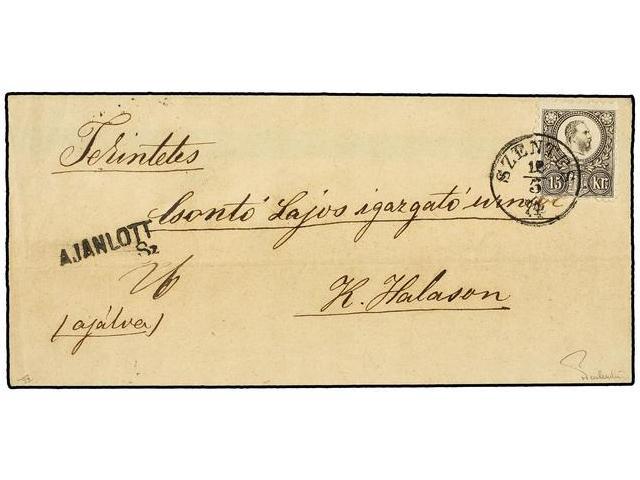 Tekintetes
Csontó Lajos igazgató urnak
K. Halason
AJÁNLOTT
Sz
26
(ajálva)
SZENTES
12
5
74
15 Kr.